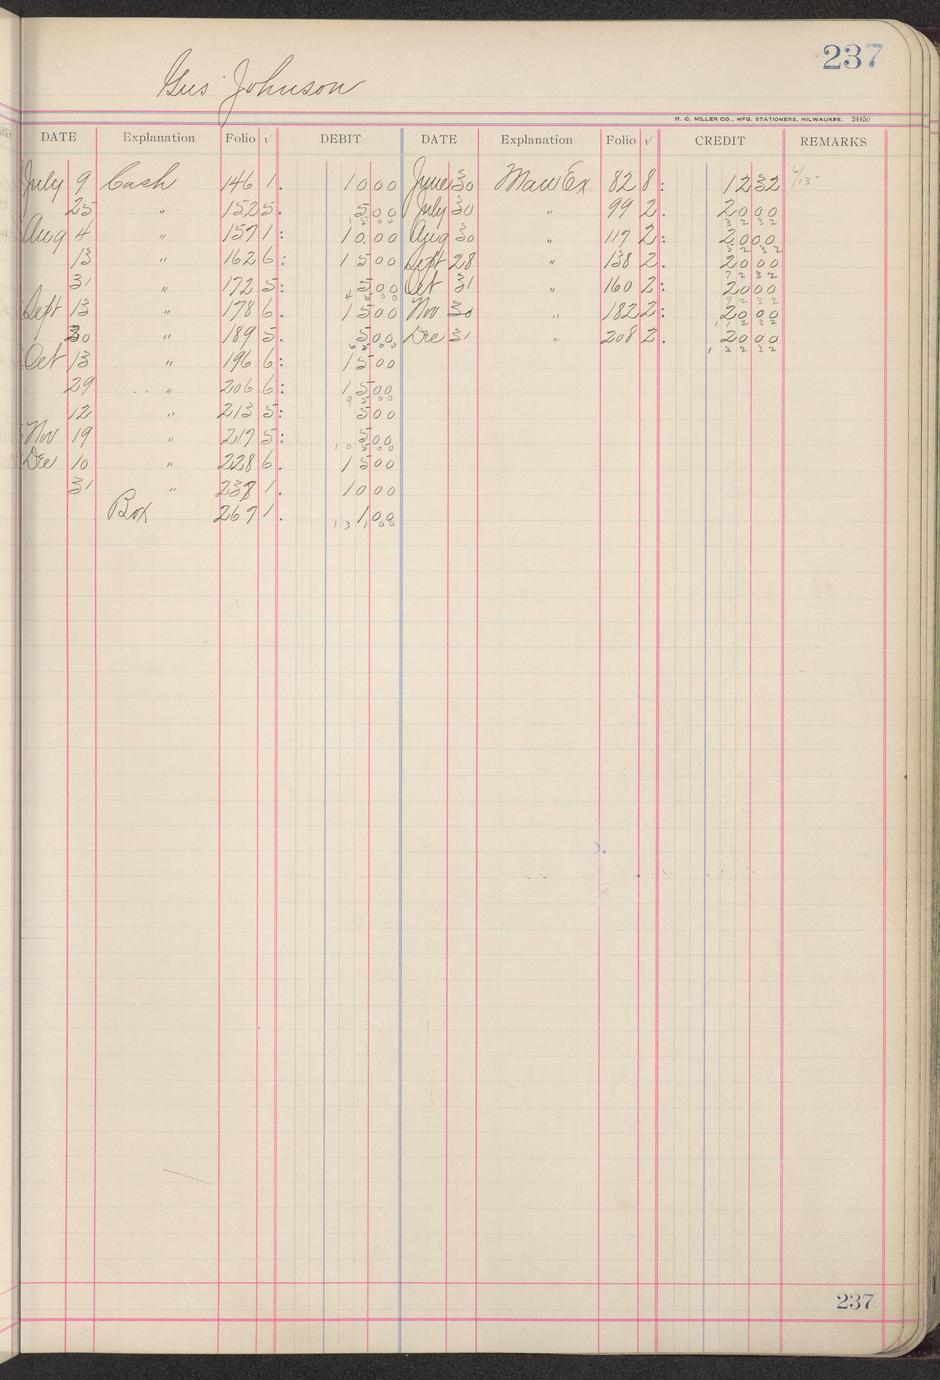 237
Gus Johnson
H. C. MILLER CO., MFG. STATIONERS, MILWAUKEE. 24450
DATE Explanation Folio √ DEBIT DATE Explanation Folio √ CREDIT REMARKS
July 9 Cash 146 1. 1000 June 30 Manu Ex 82 8: 1232 6/13-
25 " 152 5. 500 July 30 " 99 2. 2000
1500 3232
Aug 4 " 157 1: 1000 Aug 30 " 117 2: 2000
5232
13 " 162 6: 1500 Sept 28 " 138 2. 2000
7232
31 " 172 5: 500 Oct 31 " 160 2: 2000
4500 9232
Sept 13 " 178 6. 1500 Nov 30 " 182 2: 2000
11232
30 " 189 5. 500 Dec 31 " 208 2. 2000
6500 13232
Oct 13 " 196 6: 1500
29 " 206 6: 1500
9500
12 " 213 5: 500
Nov 19 " 217 5: 500
10500
Dec 10 " 228 6. 1500
31 " 238 1. 1000
Box 267 1. 100
13100
237